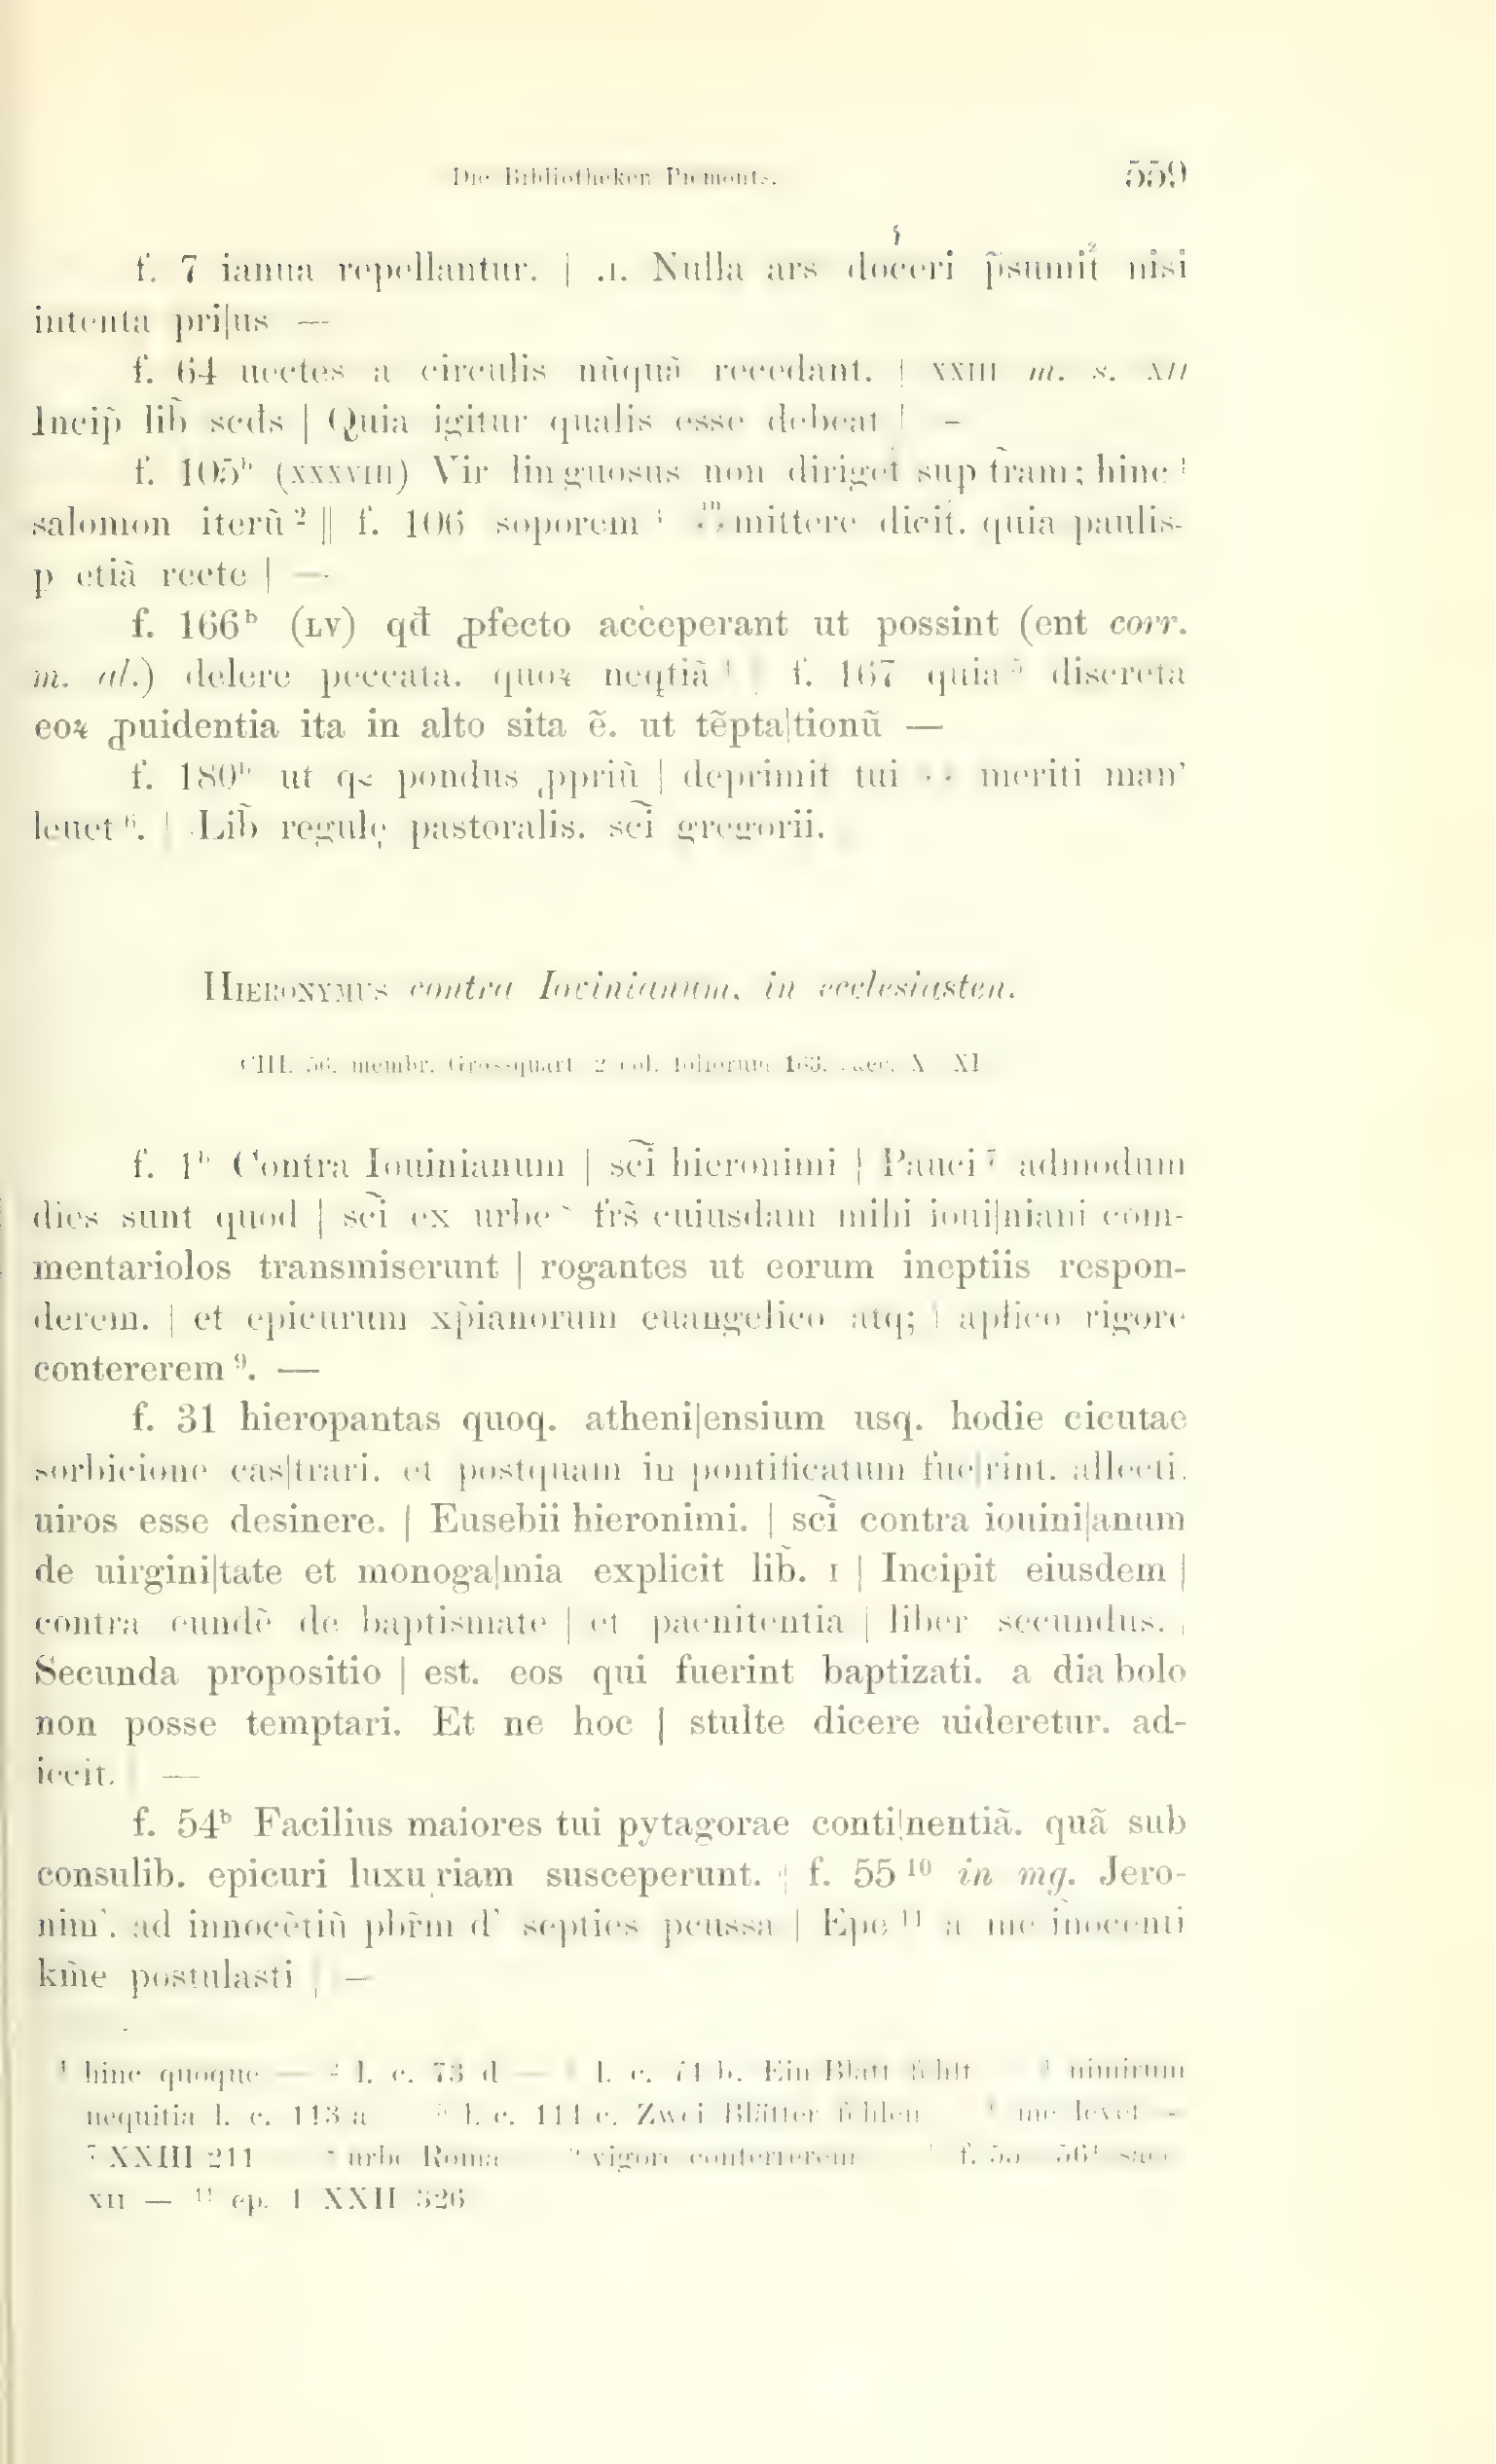 Die Bibliotheken Piemonts. 559
f. 7 ianua repellantur. | .I. Nulla ars doceri p̃sumit² nisi
intenta pri|us —
f. 64 uectes a circulis nũquã recedant. | XXIII m. s. XII
Incip̃ lib̃ scds | Quia igitur qualis esse debeat | —
f. 105ᵇ (XXXVIII) Vir linguosus non diriget sup t̃ram; hinc ¹
salomon iterũ ² || f. 106 soporem ³ mittere dicit. quia paulis-
p etiã recte | —
f. 166ᵇ (LV) qđ ꝓfecto acceperant ut possint (ent corr.
m. al.) delere peccata. quoꝝ neqtiã ⁴ | f. 167 quia ⁵ discreta
eoꝝ ꝓuidentia ita in alto sita ẽ. ut tẽpta|tionũ —
f. 180ᵇ ut pondus ꝓpriũ | deprimit tui meriti man’
leuet ⁶. | Lib̃ regulę pastoralis. sc̃i gregorii.
HIERONYMUS contra Iovinianum, in ecclesiasten.
CIII. 56. membr. Grossquart 2 col. foliorum saec. X XI
f. 1ᵇ Contra Iouinianum | sc̃i hieronimi | Pauci ⁷ admodum
dies sunt quod | sc̃i ex urbe ⁸ fr̃s cuiusdam mihi ioui|niani com-
mentariolos transmiserunt | rogantes ut eorum ineptiis respon-
derem. | et epicurum xp̃ianorum euangelico atq; | aplico rigore
contererem ⁹. —
f. 31 hieropantas quoq. atheni|ensium usq. hodie cicutae
sorbicione cas|trari. et postquam in pontificatum fue|rint. allecti.
uiros esse desinere. | Eusebii hieronimi. | sc̃i contra iouini|anum
de uirgini|tate et monoga|mia explicit lib̃. I | Incipit eiusdem |
contra eundẽ de baptismate | et paenitentia | liber secundus. |
Secunda propositio | est. eos qui fuerint baptizati. a dia bolo
non posse temptari. Et ne hoc | stulte dicere uideretur. ad-
iecit. —
f. 54ᵇ Facilius maiores tui pytagorae conti|nentiã. quã sub
consulib. epicuri luxu|riam susceperunt. | f. 55 ¹⁰ in mg. Jero-
nim’. ad innocẽtiũ pbr̃m d’ septies pcussa | Epe ¹¹ a me ĩnocenti
km̃e postulasti | —
¹ hinc quoque — ² l. c. 73 d — ³ l. c. 74 b. Ein Blatt fehlt ⁴ nimirum
nequitia l. c. 113 a ⁵ l. c. 114 c. Zwei Blätter fehlen ⁶ me levet —
⁷ XXIII 211 ⁸ urbe Roma ⁹ vigore conterrerem f. 55 56ᵃ saec
XII — ¹¹ ep. 1 XXII 326